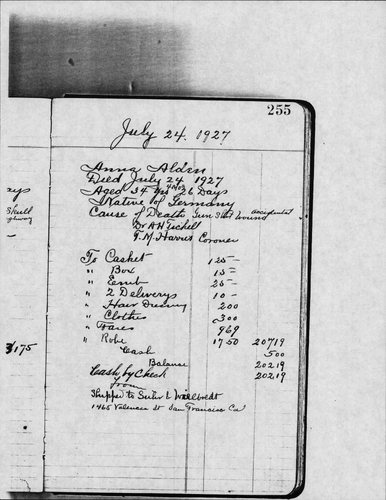 255
July 24. 1927
Anna Alden
Died July 24 1927
Aged 34 yrs 4 Mos 26 Days
Native of Germany
Cause of Death Gun Shot Wound accidental
Dr A H
F. M. Harris Coroner
To Casket 125—
" Box 15—
" Emb 25—
" 2 Deliverys 10—
" Hair Dressing 200
" Clothes 300
" Fares 969
" Robe 1750 20719
Cash 500
Balance 20219
Cash by Check 20219
from
Shipped to Suhr &
1465 Valencia St San Francisco Ca
ays
Skull
175